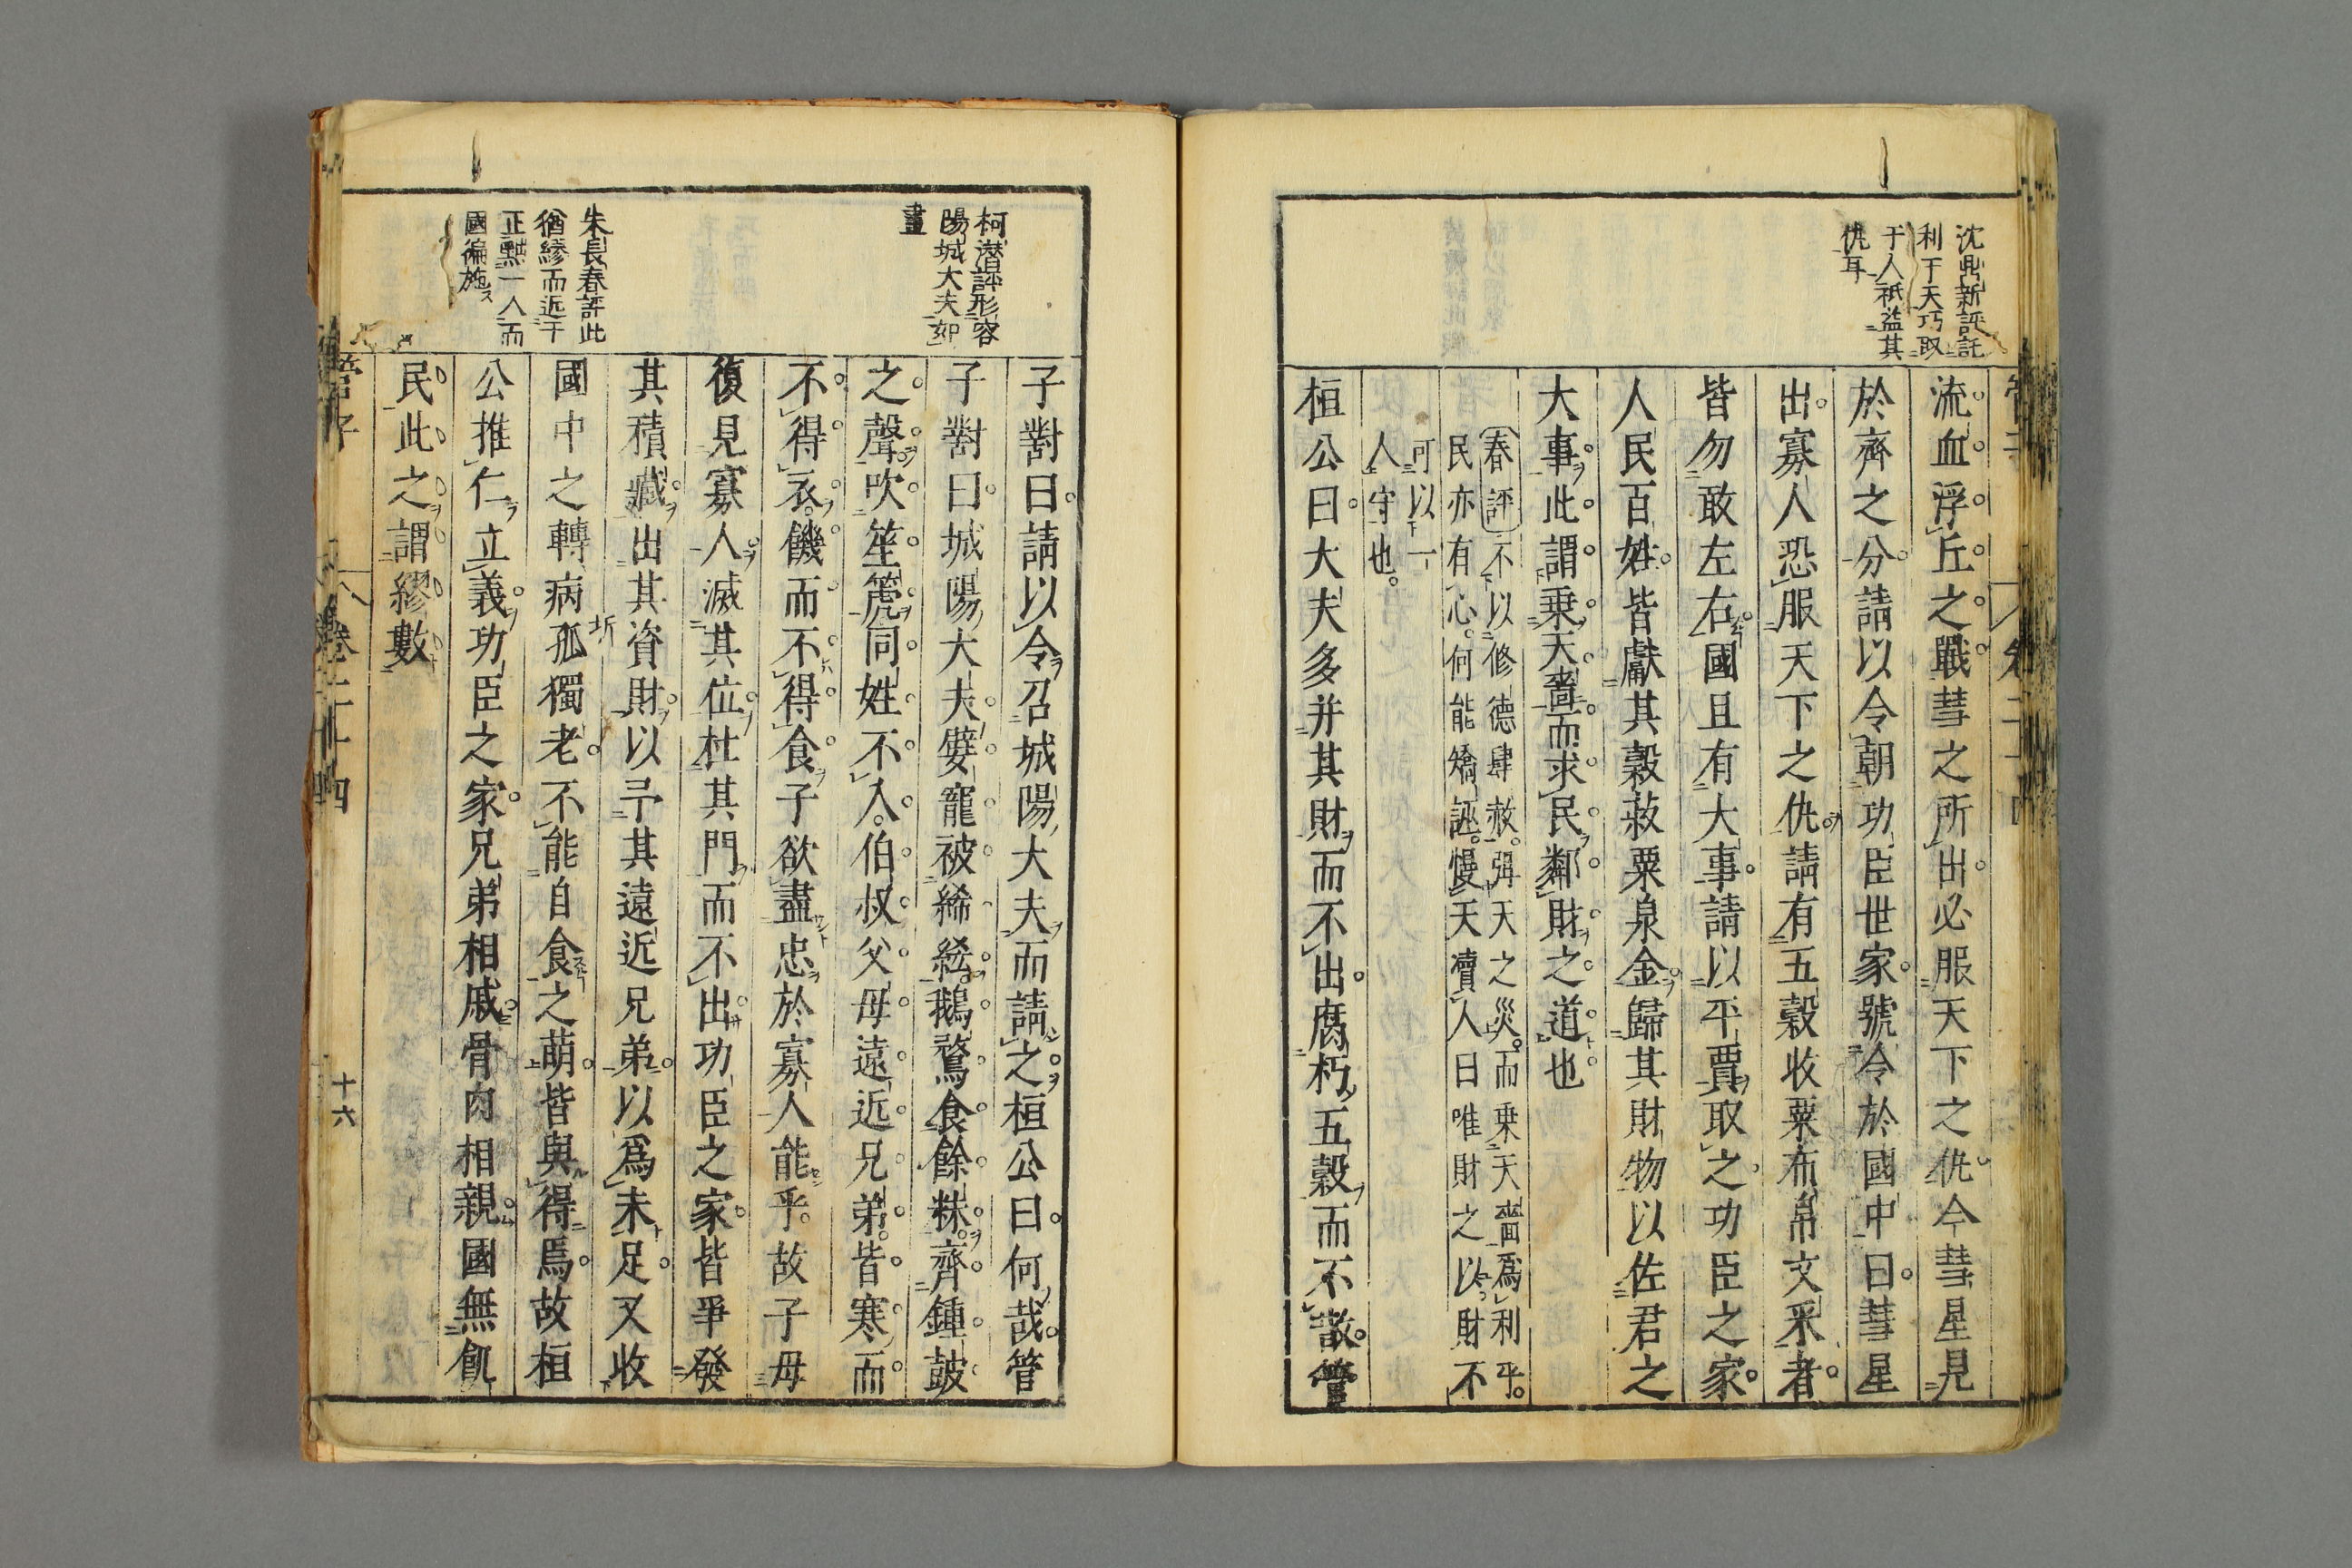 沈鼎新評託
利于天巧取
于人秖益其
仇耳
流血浮丘之戰彗之所出必服天下之仇今彗星見
於齊之分請以令朝功臣世家號令於國中曰彗星
出寡人恐服天下之仇請有五穀收粟布帛文采者
皆勿敢左右國且有大事請以平賈取之功臣之家
人民百姓皆獻其穀菽粟泉金歸其財物以佐君之
大事此謂乗天嗇而求民鄰財之道也
春評不以修德肆赦弭天之災而乗天嗇爲利乎
民亦有心何能矯誣慢天凟人曰唯財之以財不
可以一
人守也
桓公曰大夫多并其財而不出腐朽五穀而不散管
柯潛評形容
陽城大夫如
畫
朱長春評此
猶繆而近于
正黜一人而
國徧施
子對曰請以令召城陽大夫而請之桓公曰何哉管
子對曰城陽大夫嬖寵被絺綌鵝鶩食餘粖齊鍾鼓
之聲吹笙篪同姓不入伯叔父母遠近兄弟皆寒而
不得衣饑而不得食子欲盡忠於寡人能乎故子毋
復見寡人滅其位杜其門而不出功臣之家皆爭發
其積藏出其資財以予其遠近兄弟以爲未足又收
國中之轉病孤獨老不能自食之萌皆與得焉故桓
公推仁立義功臣之家兄弟相戚骨肉相親國無飢
民此之謂繆數
管子
卷二十四
十六